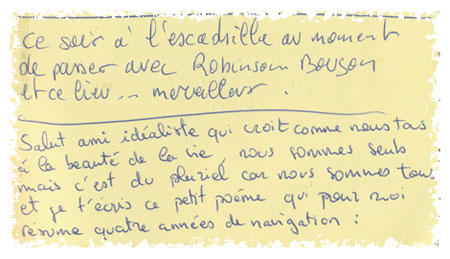 Ce soir à l'escadrille au moment
de passer avec Robinson
et ce lieu ... merveilleux.
Salut ami idéaliste qui croit comme nous tous
à la beauté de la vie, nous sommes seuls
mais c'est du pluriel car nous sommes tous
et je t'écris ce petit poème qui pour moi
résume quatre années de navigation :